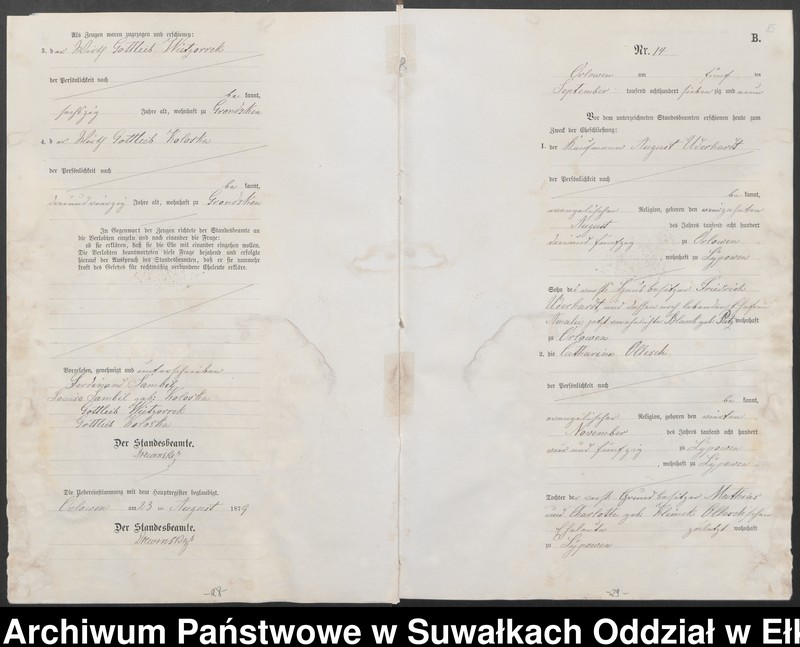 Als Zeugen waren zugezogen und erschienen:
3. der Wirth Gottlieb Wietzorrek
der Persönlichkeit nach
be kannt,
sechszig Jahre alt, wohnhaft zu Gronsken
4. der Wirth Gottlieb Koloska
der Persönlichkeit nach
be kannt,
dreiundvierzig Jahre alt, wohnhaft zu Gronsken
In Gegenwart der Zeugen richtete der Standesbeamte an
die Verlobten einzeln und nach einander die Frage:
ob sie erklären, daß sie die Ehe mit einander eingehen wollen.
Die Verlobten beantworteten diese Frage bejahend und erfolgte
hierauf der Ausspruch des Standesbeamten, daß er sie nunmehr
kraft des Gesetzes für rechtmäßig verbundene Eheleute erkläre.
Vorgelesen, genehmigt und unterschrieben
Ferdinand Sambel
Louise Sambel geb. Koloska
Gottlieb Wietzorrek
Gottlieb Koloska
Der Standesbeamte.
Die Uebereinstimmung mit dem Hauptregister beglaubigt.
Orlowen am 23 ten August 1879
Der Standesbeamte.
-28-
B.
Nr. 14
Orlowen am fünf ten
September tausend achthundert sieben zig und neun
Vor dem unterzeichneten Standesbeamten erschienen heute zum
Zweck der Eheschließung:
1. der Kaufmann August Uderhardt
der Persönlichkeit nach
be kannt,
evangelischer Religion, geboren den
August des Jahres tausend acht hundert
dreiund fünfzig zu Orlowen
, wohnhaft zu Lypowen
Sohn des Hausbesitzer Friedrich
Uderhardt und dessen noch lebenden Ehefrau
Amalie jetzt verehelichte Blank geb. wohnhaft
zu Orlowen
2. die Catharina Ollesch
der Persönlichkeit nach
be kannt,
evangelischer Religion, geboren den vierten
November des Jahres tausend acht hundert
vier und fünfzig zu Lypowen
, wohnhaft zu Lypowen
Tochter der Grundbesitzer Mathias
und Charlotte geb. Klimek Olleschschen
Eheleute zuletzt wohnhaft
zu Lypowen
-29-
Archiwum Państwowe w Suwałkach Oddział w Ełk